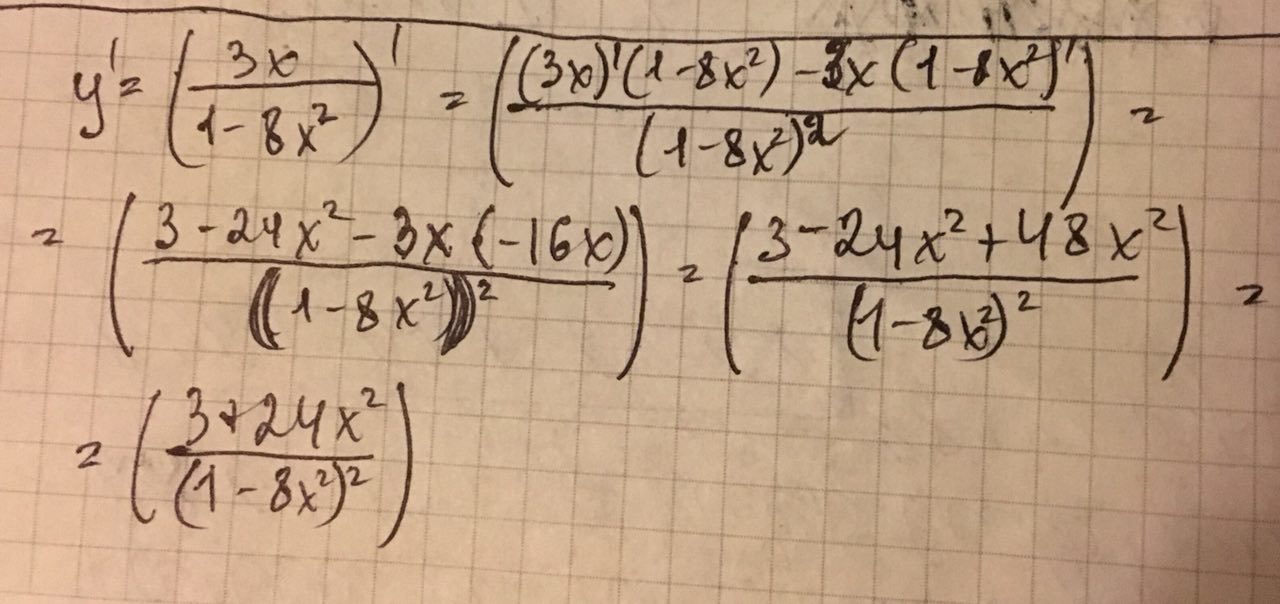 y' = (3x / (1 - 8x²))' = (((3x)'(1 - 8x²) - 3x(1 - 8x²)') / (1 - 8x²)²) =
= ((3 - 24x² - 3x(-16x)) / ((1 - 8x²))²) = ((3 - 24x² + 48x²) / (1 - 8x²)²) =
= ((3 + 24x²) / (1 - 8x²)²)